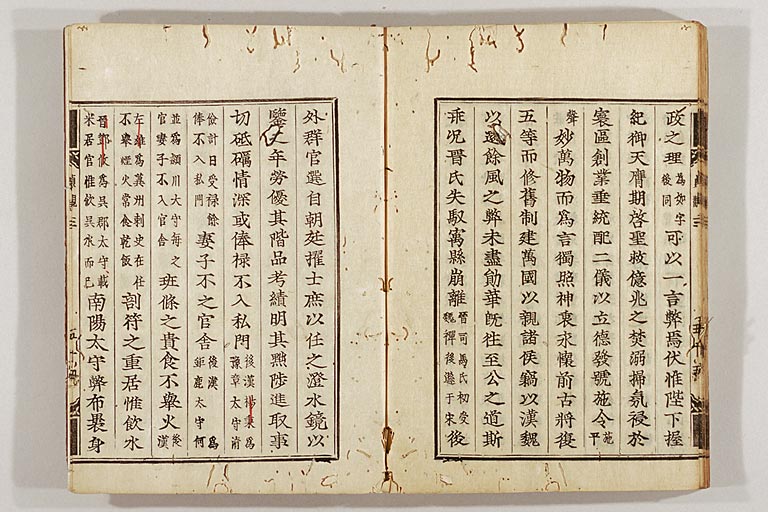 政之理為如字後同可以一言弊焉伏惟陛下握
紀御天膺期啓聖救億兆之焚溺掃氛祲於
寰區創業垂統配二儀以立德發號施令施平
聲妙萬物而為言獨照神衷永懷前古將復
五等而修舊制建萬國以親諸侯竊以漢魏
以還餘風之弊未盡勛華旣往至公之道斯
乖况晉氏失馭寓縣崩離晉司馬氏初受魏禪後遜于宋後
外群官選自朝廷擢士庶以任之澄水鏡以
鑒之年勞優其階品考績明其黜陟進取事
切砥礪情深或俸祿不入私門後漢楊秉為豫章太守清
儉計日受禄餘俸不入私門妻子不之官舍後漢為鉅鹿太守何
並為潁川太守每之官妻子不入官舍班條之貴食不舉火後漢
左雄為冀州刺史在任不舉煙火常食乾飯剖符之重居惟飲水
晉鄧攸為吳郡太守載米居官惟飲吳水而已南陽太守弊布裹身